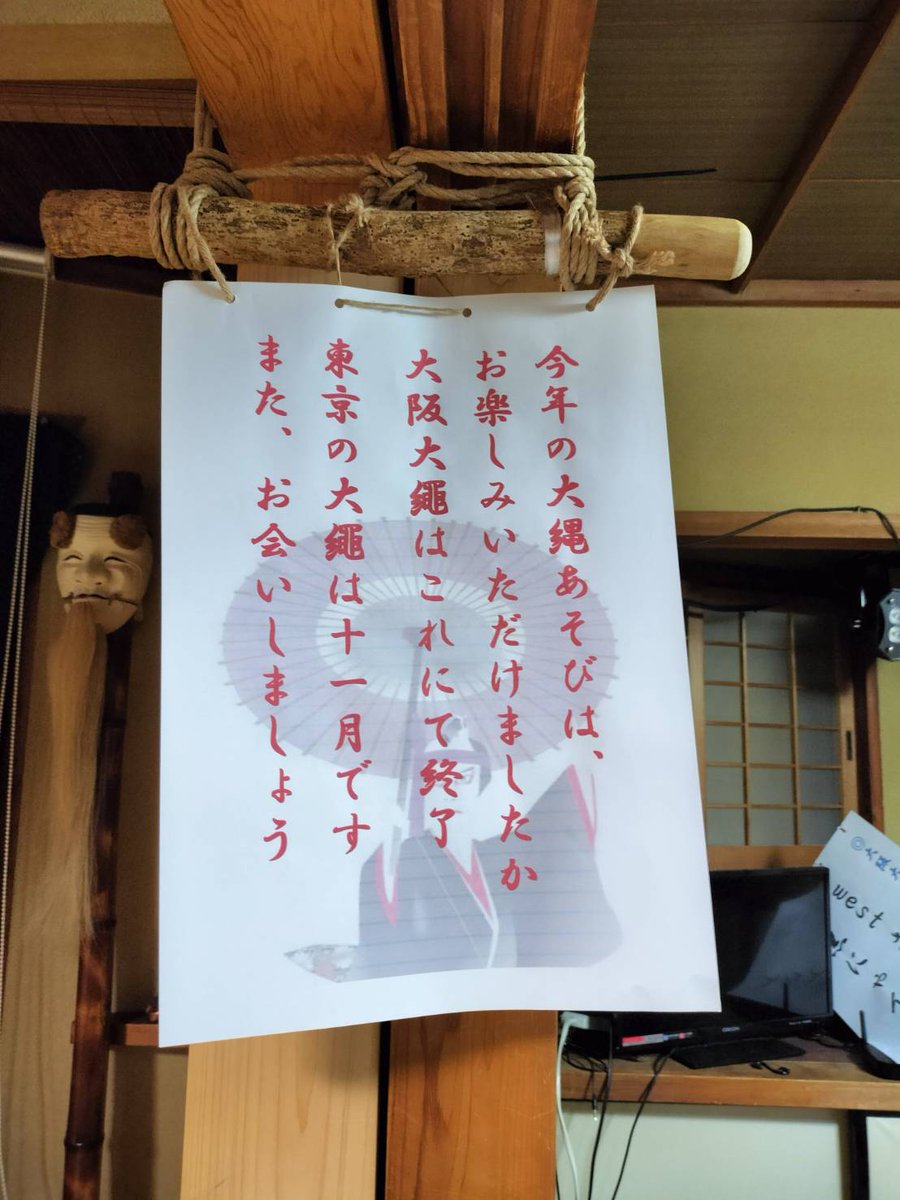 今年の大縄あそびは、
お楽しみいただけましたか
大阪大繩はこれにて終了
東京の大繩は十一月です
また、お会いしましょう
◎大阪大
west